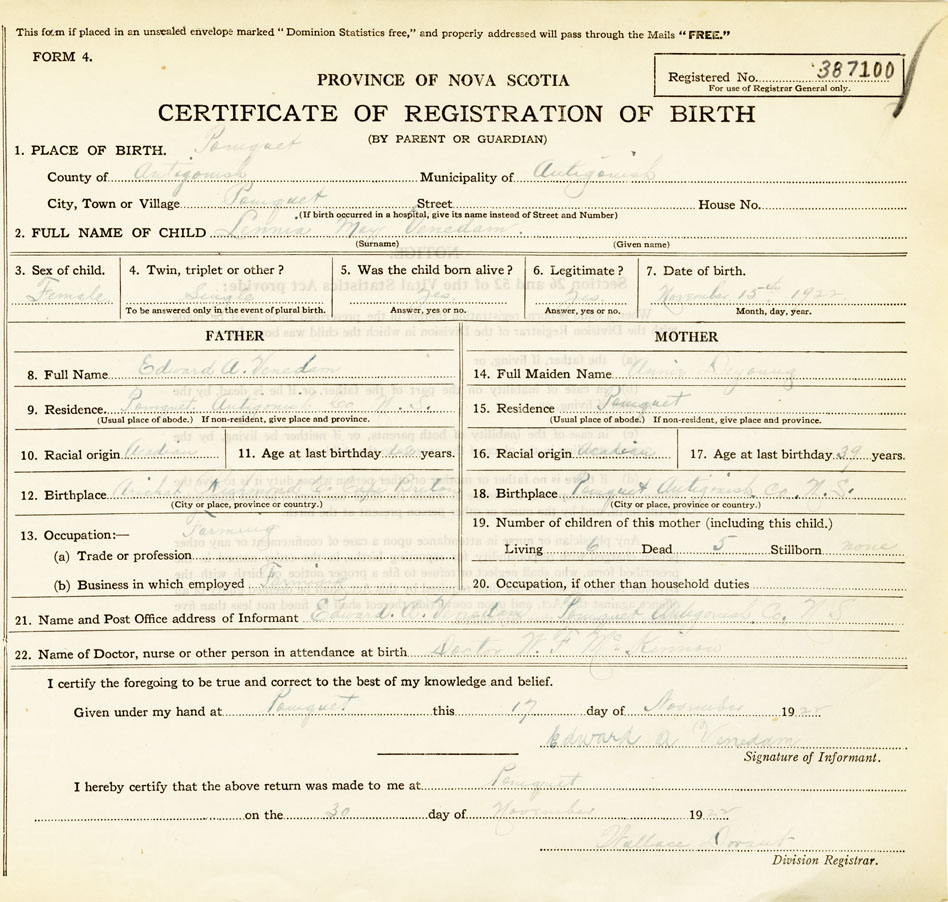 This form if placed in an unsealed envelope marked "Dominion Statistics free," and properly addressed will pass through the Mails "FREE."
FORM 4.
PROVINCE OF NOVA SCOTIA
Registered No. 387100
For use of Registrar General only.
CERTIFICATE OF REGISTRATION OF BIRTH
(BY PARENT OR GUARDIAN)
1. PLACE OF BIRTH. Pomquet
County of Antigonish Municipality of Antigonish
City, Town or Village Pomquet Street House No.
(If birth occurred in a hospital, give its name instead of Street and Number)
2. FULL NAME OF CHILD Lennia May Venedam
(Surname) (Given name)
NOTICE.
Section 26 and 52 of the Vital Statistics Act provide:
3. Sex of child. 4. Twin, triplet or other? 5. Was the child born alive? 6. Legitimate? 7. Date of birth.
Female Single Yes. Yes. November 15th 1922
To be answered only in the event of plural birth. Answer, yes or no. Answer, yes or no. Month, day, year.
FATHER MOTHER
8. Full Name Edward A. Venedam 14. Full Maiden Name Annie Deyoung
9. Residence Pomquet Antigonish Co N. S. 15. Residence Pomquet
(Usual place of abode.) If non-resident, give place and province. (Usual place of abode.) If non-resident, give place and province.
10. Racial origin Acadian 11. Age at last birthday years. 16. Racial origin Acadian 17. Age at last birthday 39 years.
12. Birthplace Arichat Richmond Co Cape Breton 18. Birthplace Pomquet Antigonish Co. N. S.
(City or place, province or country.) (City or place, province or country.)
13. Occupation:— Farming 19. Number of children of this mother (including this child.)
(a) Trade or profession Living 6 Dead 5 Stillborn none
(b) Business in which employed Farming 20. Occupation, if other than household duties
21. Name and Post Office address of Informant Edward A. Venedam Pomquet Antigonish Co. N S
22. Name of Doctor, nurse or other person in attendance at birth Doctor W. F. McKinnon
I certify the foregoing to be true and correct to the best of my knowledge and belief.
Given under my hand at Pomquet this 17 day of November 1922
Edward A Venedam
Signature of Informant.
I hereby certify that the above return was made to me at Pomquet
on the 30 day of November 1922
Wallace Dorant
Division Registrar.